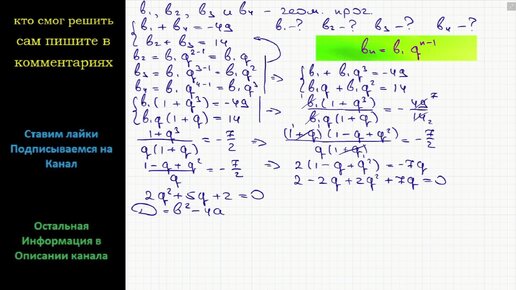 кто смог решить
сам пишите в
комментариях
Ставим лайки
Подписываемся на
Канал
Остальная
Информация в
Описании канала
b₁, b₂, b₃ и b₄ – геом. прог.
{ b₁ + b₄ = -49
{ b₂ + b₃ = 14
b₁-? b₂-? b₃-? b₄-?
bₙ = b₁ qⁿ⁻¹
b₂ = b₁ q²⁻¹ = b₁ q
b₃ = b₁ q³⁻¹ = b₁ q²
b₄ = b₁ q⁴⁻¹ = b₁ q³
{ b₁ + b₁q³ = -49
{ b₁q + b₁q² = 14
{ b₁(1+q³) = -49
{ b₁q(1+q) = 14
b₁(1+q³) / b₁q(1+q) = - 49⁷/14₂
(1+q³) / q(1+q) = - 7/2 ⇒ (1+q)(1-q+q²) / q(1+q) = - 7/2
(1-q+q²) / q = - 7/2 ⇒ 2(1-q+q²) = -7q
2-2q+2q²+7q=0
2q²+5q+2=0
D = b²-4a